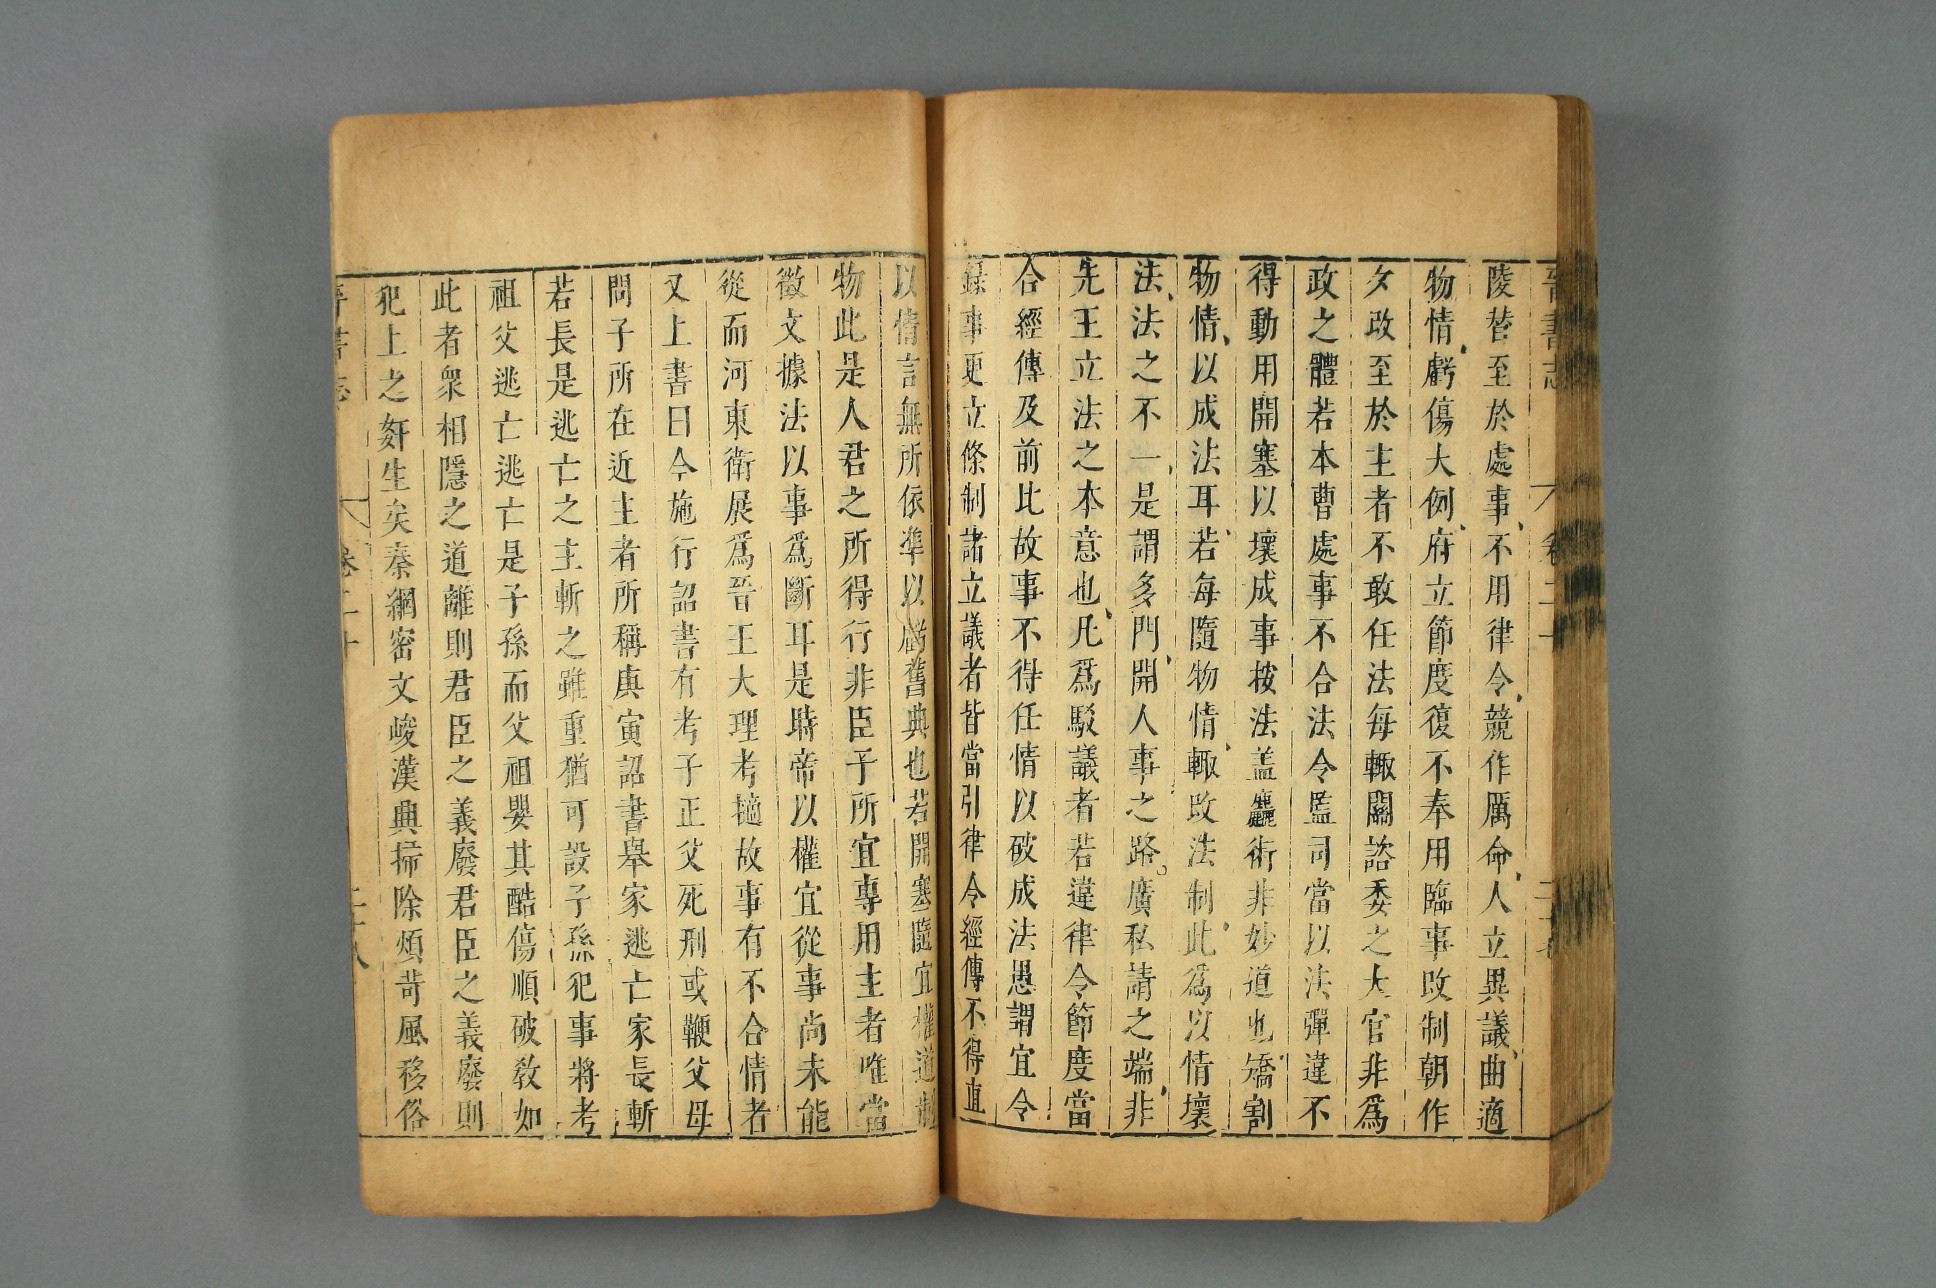 晉書志 卷三十
陵替至於處事不用律令競作厲命人立異議曲適
物情虧傷大例府立節度復不奉用臨事改制朝作
夕改至於主者不敢任法每輙關諮委之大官非爲
政之體若本曹處事不合法令監司當以法彈違不
得動用開塞以壞成事按法蓋麤術非妙道也矯割
物情以成法耳若每隨物情輙改法制此爲以情壞
法法之不一是謂多門開人事之路廣私請之端非
先王立法之本意也凡爲駁議者若違律令節度當
合經傳及前比故事不得任情以破成法愚謂宜令
錄事更立條制諸立議者皆當引律令經傳不得直
以情言無所依準以虧舊典也若開塞隨宜權道制
物此是人君之所得行非臣子所宜專用主者唯當
徵文據法以事爲斷耳是時帝以權宜從事尚未能
從而河東衛展爲晉王大理考擿故事有不合情者
又上書曰今施行詔書有考子正父死刑或鞭父母
問子所在近主者所稱庚寅詔書舉家逃亡家長斬
若長是逃亡之主斬之雖重猶可設子孫犯事將考
祖父逃亡逃亡是子孫而父祖嬰其酷傷順破敎如
此者衆相隱之道離則君臣之義廢君臣之義廢則
犯上之奸生矣秦網密文峻漢興掃除煩苛風移俗
晉書志 卷三十 二十八